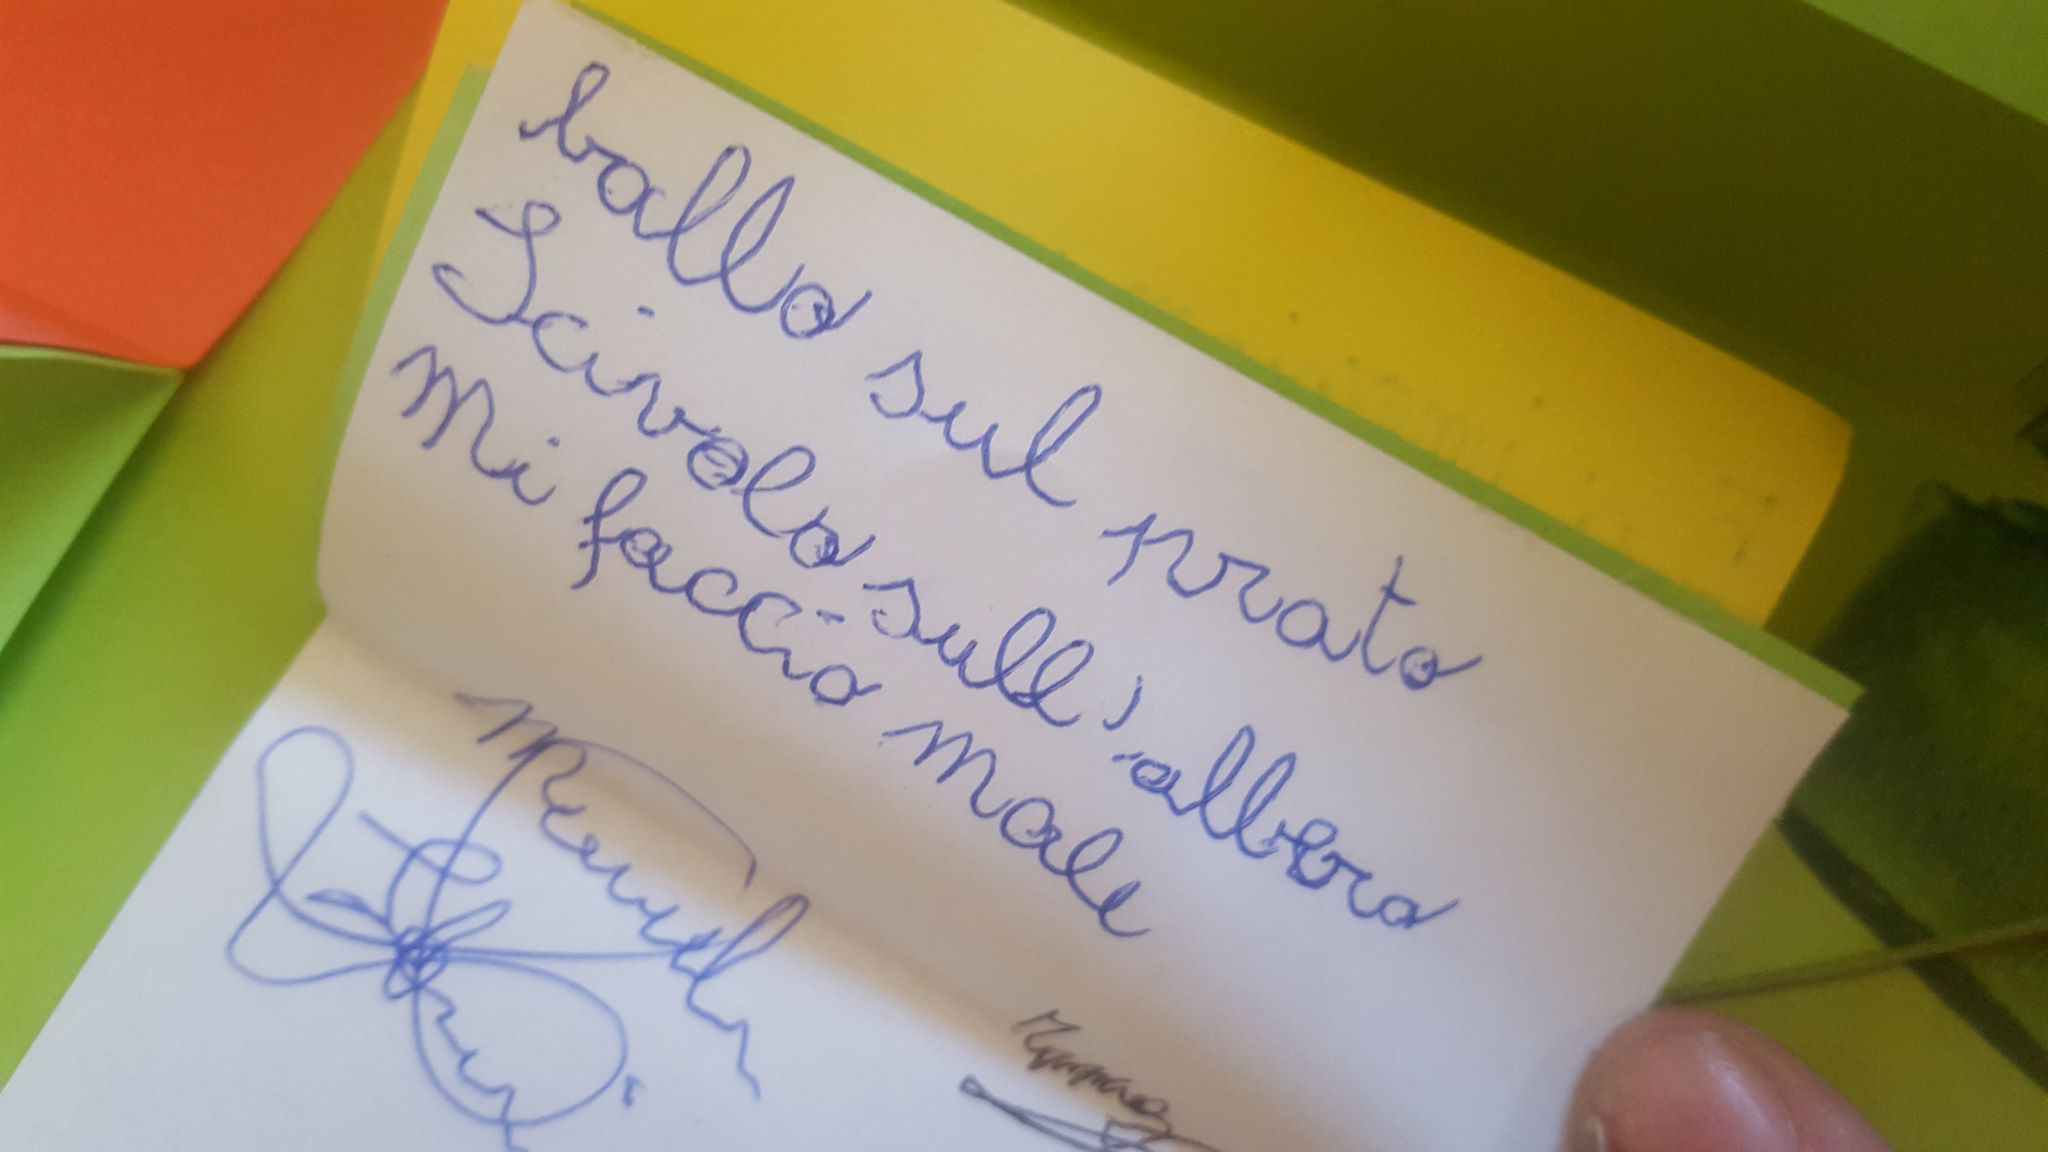 ballo sul prato
Scivolo sull'albero
Mi faccio male